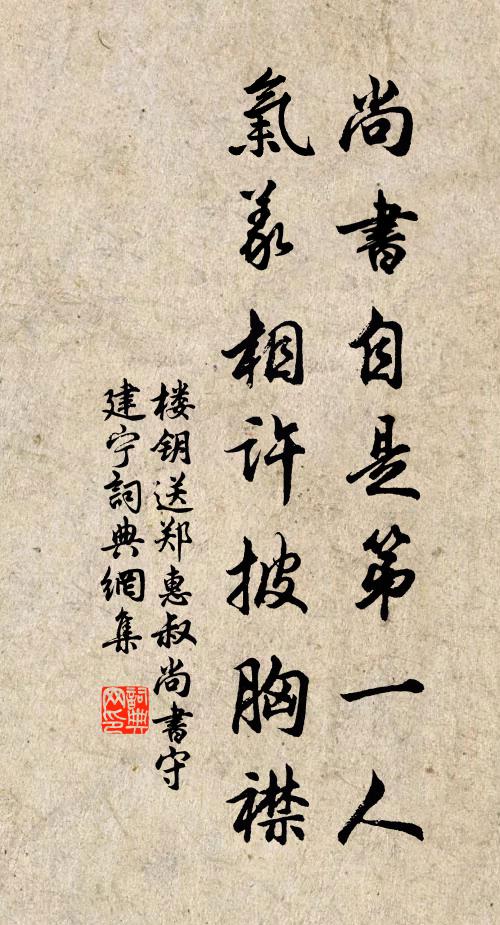 尚書自是第一人
氣義相许披胸襟
楼钥送郑惠叔尚書守
建宁詞典網集
詞典网印